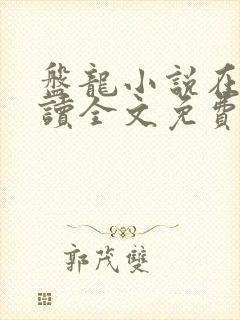 盤龍小說在
讀全文免費
郭茂雙